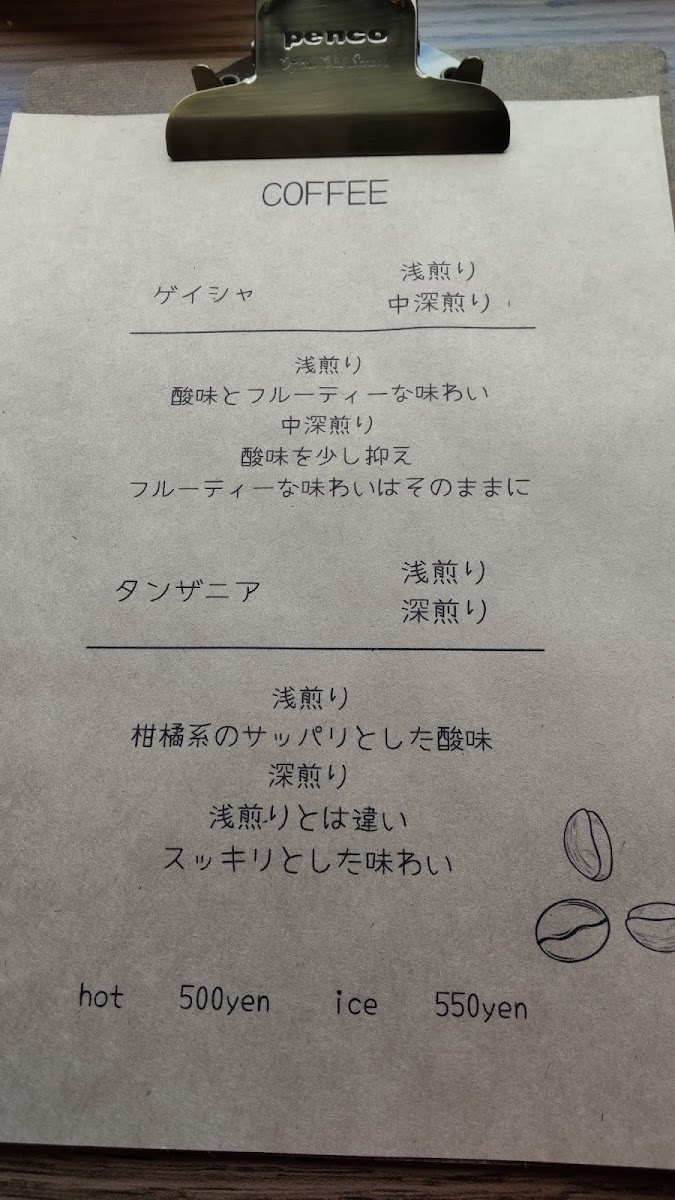 penco
COFFEE
浅煎り
ゲイシャ
中深煎り
浅煎り
酸味とフルーティーな味わい
中深煎り
酸味を少し抑え
フルーティーな味わいはそのままに
浅煎り
タンザニア
深煎り
浅煎り
柑橘系のサッパリとした酸味
深煎り
浅煎りとは違い
スッキリとした味わい
hot 500yen ice 550yen